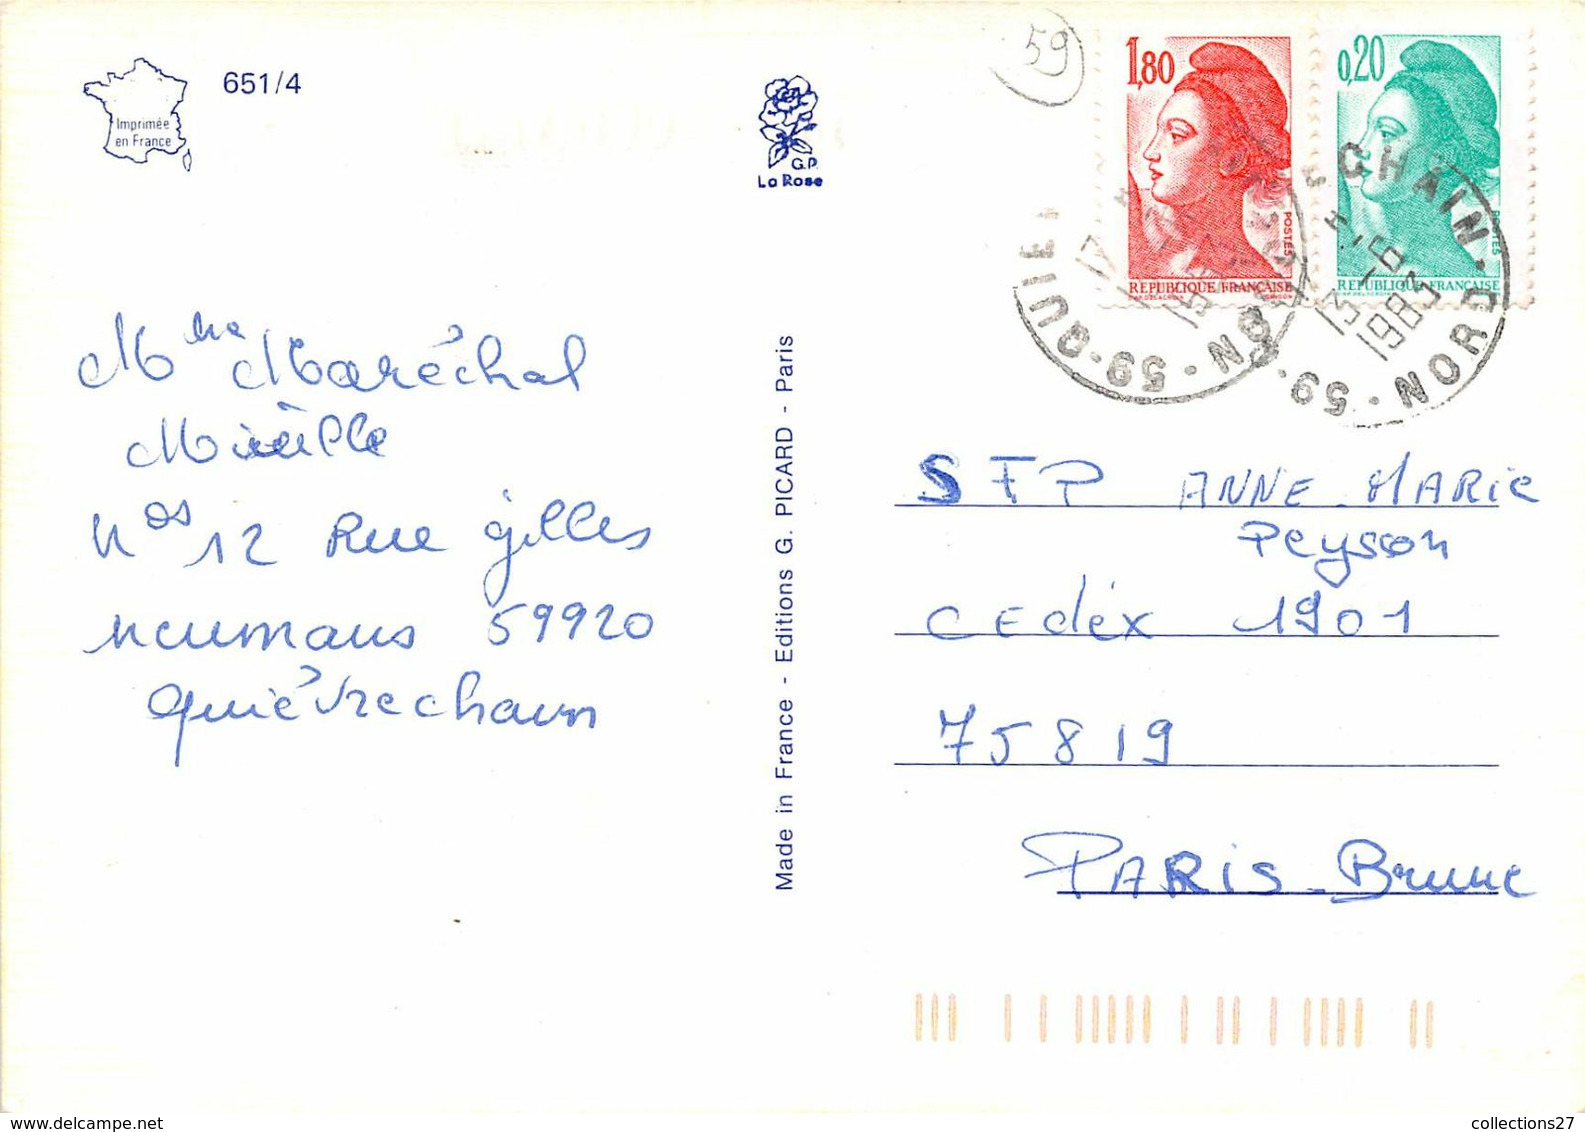 Imprimée
en France
651/4
G.P.
La Rose
59
1,80
POSTES
REPUBLIQUE FRANÇAISE
0,20
POSTES
REPUBLIQUE FRANÇAISE
ECHAIN-NORD-59
13-6
1983
59-QUIE
Mme Maréchal
Mireille
Nos 12 Rue gilles
neumans 59920
quièvrechain
Made in France - Editions G. PICARD - Paris
STP ANNE-MARIE
Peyson
CEdéx 1901
75819
PARIS-Brune
collections27